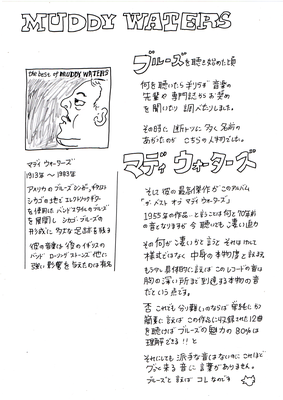 MUDDY WATERS
the best of MUDDY WATERS
マディ ウォーターズ
1913年 〜 1983年
アメリカの ブルースシンガー、ギタリスト
シカゴの地で エレクトリックギター
を使用した バンドスタイルの ブルース
を展開し シカゴ・ブルースの
形成に 多大な 足跡を残す
彼の音楽は 後の イギリスの
バンド ローリング ストーンズ 他に
強い 影響を 与えたのは有名
ブルースを聴き始めた頃
何を聴いたら 音楽の
先輩や 専門誌から お薦め
を聞いたり 調べたりしました。
その時に 断トツに 多く 名前の
あがったのが こちらの人物でした。
マディ ウォーターズ
そして 彼の最高傑作が このアルバム
"ザ・ベスト オブ マディ ウォーターズ"
1955年の作品… と言うことは 何と70年前
の音となりますが 今聴いても 凄い迫力
その何が凄いかと言うと それはけして
様式ではなく 中身の 本物度と
もう少し 具体的に 言えば このレコードの音は
胸の 深い所まで 到達する本物の音
だという点です。
否 これでも 分り難いのならば 単純に もっと
簡素に 言えば この作品に収録された12曲
を聴けば ブルースの魅力の 80%は
理解できる!! と
それにしても 派手な音はないのに これほど
グッと来る 音に 言葉がありません。
ブルースと 言えば コレなのです